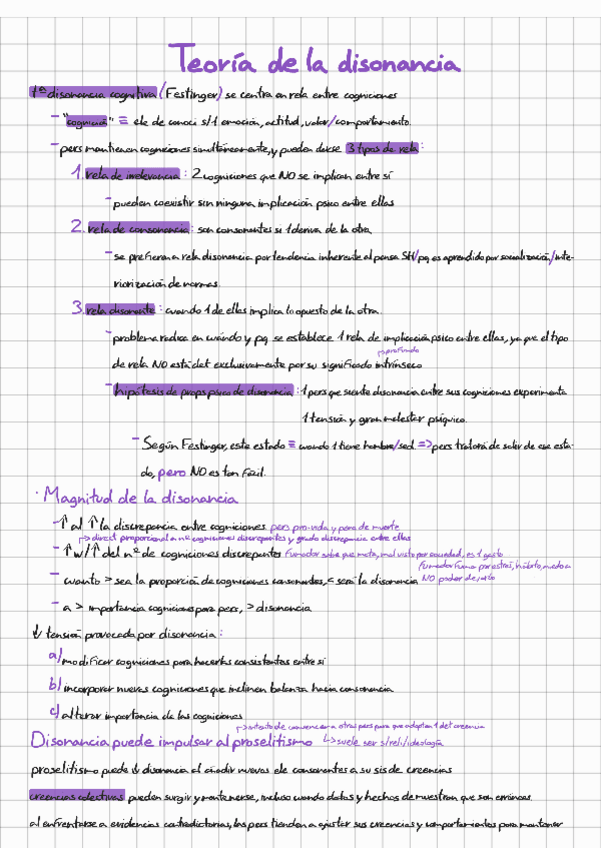 Teoría de la disonancia
tª disonancia cognitiva (Festinger) se centra en rela entre cogniciones
- "cognición" ≡ ele de conoci s/1 emoción, actitud, valor/comportamiento.
- pers mantienen cogniciones simultáneamente, y pueden darse 3 tipos de rela:
1. rela de irrelevancia: 2 cogniciones que NO se implican entre sí
- pueden coexistir sin ninguna implicación psico entre ellas
2. rela de consonancia: son consonantes si 1 deriva de la otra.
- se prefieren a rela disonancia por tendencia inherente al pensa SH/pq es aprendido por socialización/inte-
riorización de normas.
3. rela disonante: cuando 1 de ellas implica lo opuesto de la otra.
- problema radica en cuándo y pq se establece 1 rela de implicación psico entre ellas, ya que el tipo
↱profundo
de rela NO está det exclusivamente por su significado intrínseco
- hipótesis de props psico de disonancia: 1 pers que siente disonancia entre sus cogniciones experimenta
1 tensión y gran malestar psíquico.
- Según Festinger, este estado ≡ cuando 1 tiene hambre/sed => pers tratará de salir de ese esta-
do, pero NO es tan fácil.
· Magnitud de la disonancia
- ↑ al ↑ la discrepancia entre cogniciones pers pro-vida y pena de muerte
↳ direct proporcional a nº cogniciones discrepantes y grado discrepancia entre ellas
- ↑ w/↑ del nº de cogniciones discrepantes fumador sabe que mata, mal visto por sociedad, es 1 gasto...
fumador fuma por estrés, hábito, miedo a
- cuanto > sea la proporción de cogniciones consonantes, < será la disonancia NO poder dejarlo
- a > importancia cogniciones para pers, > disonancia
↓ tensión provocada por disonancia:
a) modificar cogniciones para hacerlas consistentes entre sí
b) incorporar nuevas cogniciones que inclinen balanza hacia consonancia
c) alterar importancia de las cogniciones
↱ intento de convencer a otras pers para que adopten 1 det creencia
Disonancia puede impulsar al proselitismo ↳ suele ser s/reli/ideología
proselitismo puede ↓ disonancia al añadir nuevos ele consonantes a su sis de creencias
creencias colectivas pueden surgir y mantenerse, incluso cuando datos y hechos demuestran que son erróneas.
al enfrentarse a evidencias contradictorias, las pers tienden a ajustar sus creencias y comportamientos para mantener